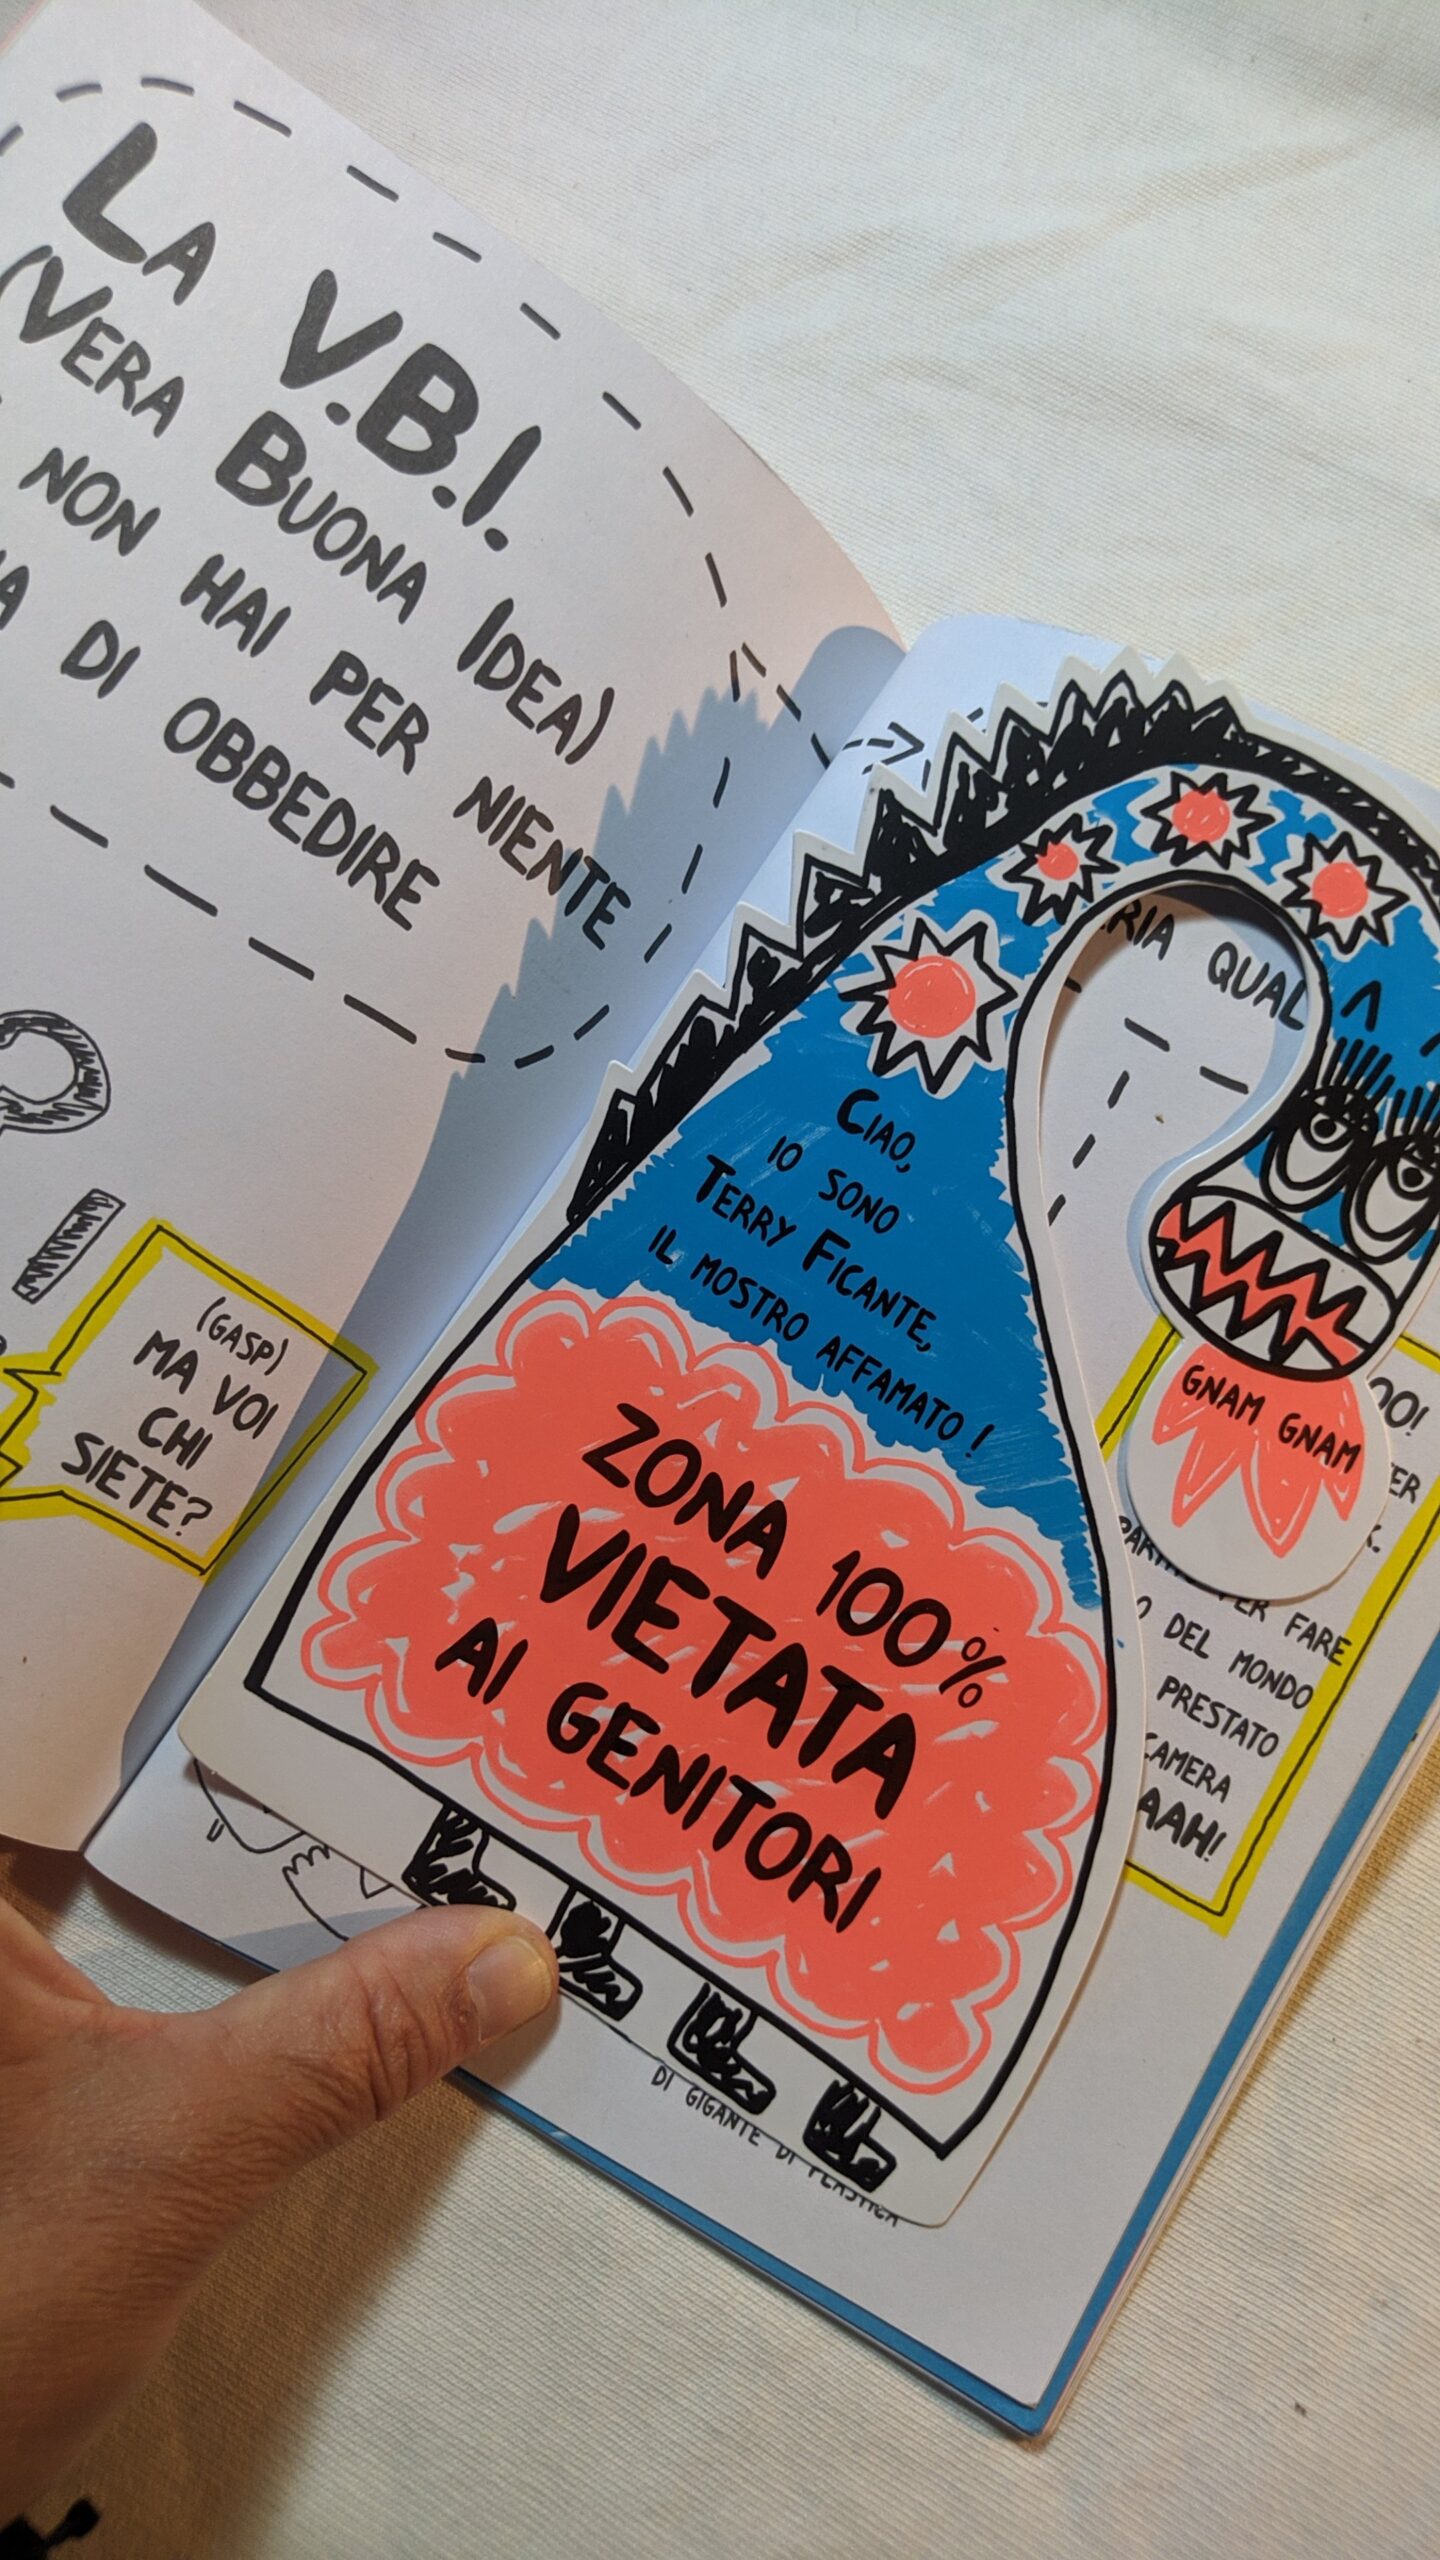 La V.B.I.
(Vera Buona Idea)
NON HAI PER NIENTE
DI OBBEDIRE
(GASP)
MA VOI
CHI
SIETE?
QUAL
CIAO,
IO SONO
TERRY FICANTE,
IL MOSTRO AFFAMATO!
ZONA 100%
VIETATA
AI GENITORI
GNAM GNAM
FARE
DEL MONDO
PRESTATO
CAMERA
AAH!
DI GIGANTE DI PLASTICA